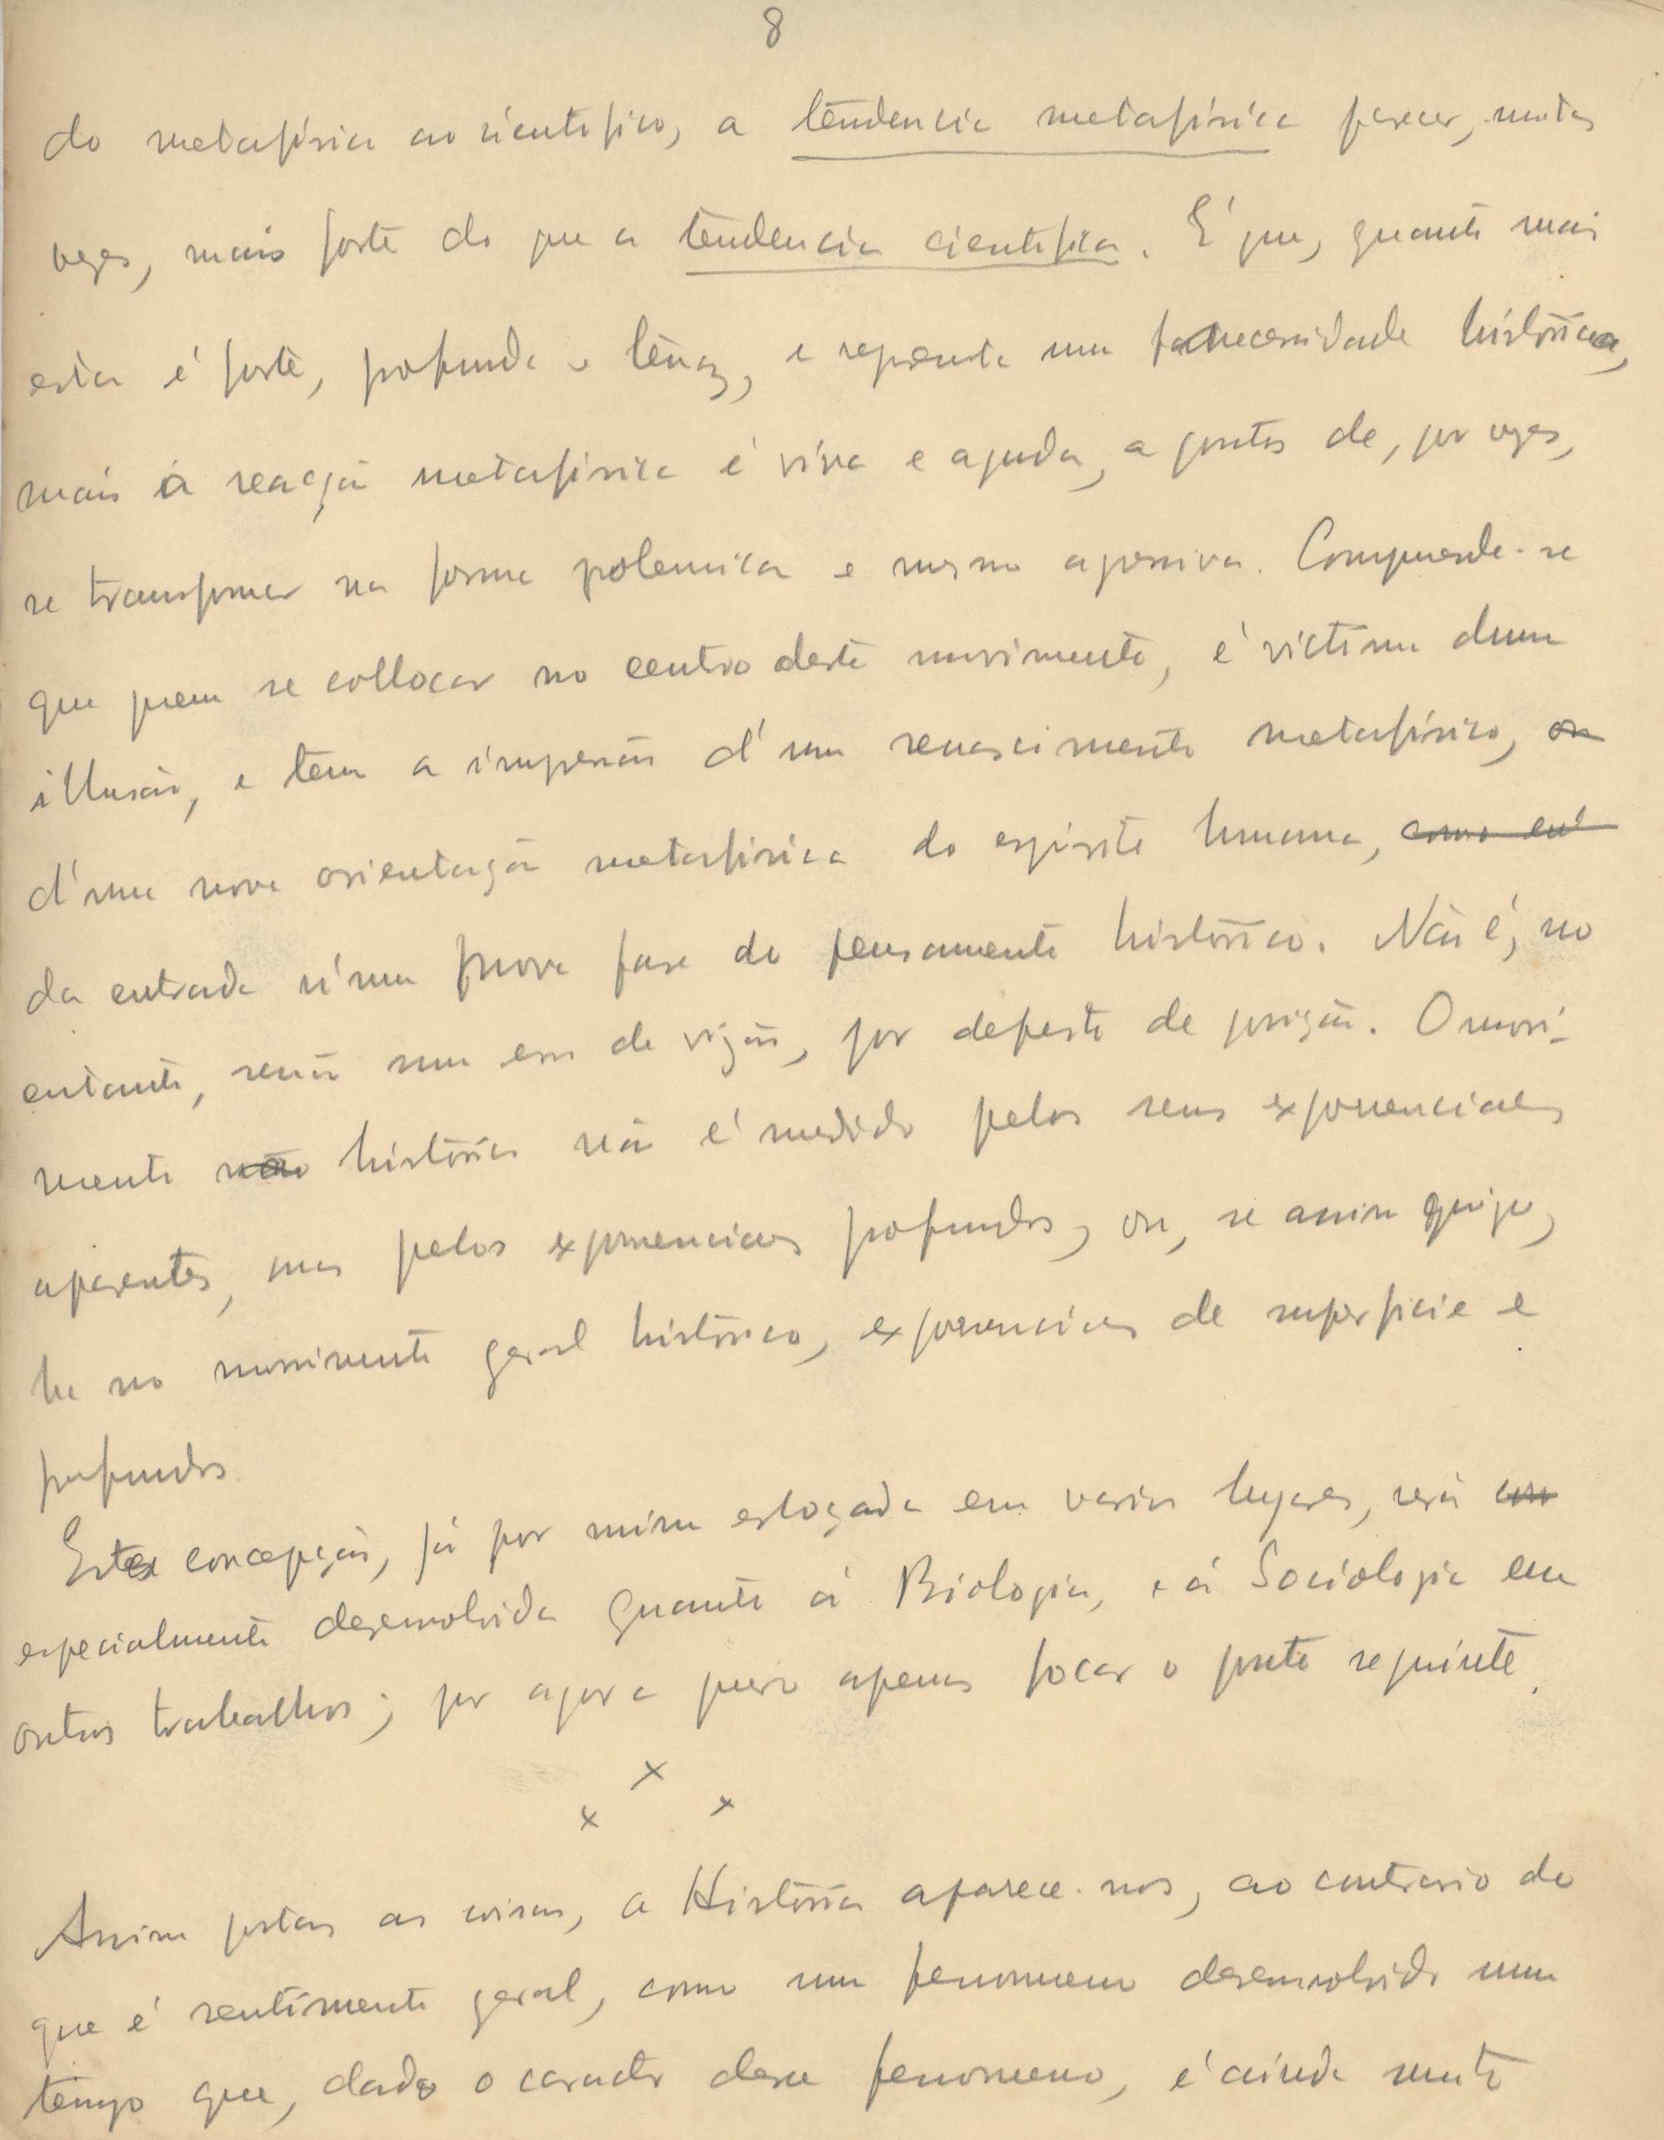 8
do metafísico ao scientifico, a tendencia metafísica parece, muitas
vezes, mais forte do que a tendencia scientifica. E' que, quanto mais
esta é forte, profunda e tenaz, e representa uma necessidade histórica,
mais a reacção metafísica é viva e aguda, a pontos de, por vezes,
se transformar na forma polemica e mesmo agressiva. Comprende-se
que quem se collocar no centro deste movimento, é victima duma
illusão, e tem a impressão d'um renascimento metafísico, ou
d'uma nova orientação metafísica do espirito humano, como
da entrada n'uma nova fase do pensamento histórico. Não é, no
entanto, senão um erro de visão, por defeito de posição. O movi-
mento não histórico não é medido pelos seus exponenciaes
aparentes, mas pelos exponenciaes profundos, ou, se assim quizer,
ha no movimento geral histórico, exponenciaes de superficie e
profundos.
Esta concepção, já por mim esboçada em varios lugares, será
especialmente desenvolvida quanto á Biologia, e á Sociologia em
outros trabalhos; por agora quero apenas focar o ponto seguinte.
x x x
Assim postas as coisas, a História aparece-nos, ao contrario do
que é sentimento geral, como um fenomeno desenvolvido num
tempo que, dado o caracter desse fenomeno, é ainda muito